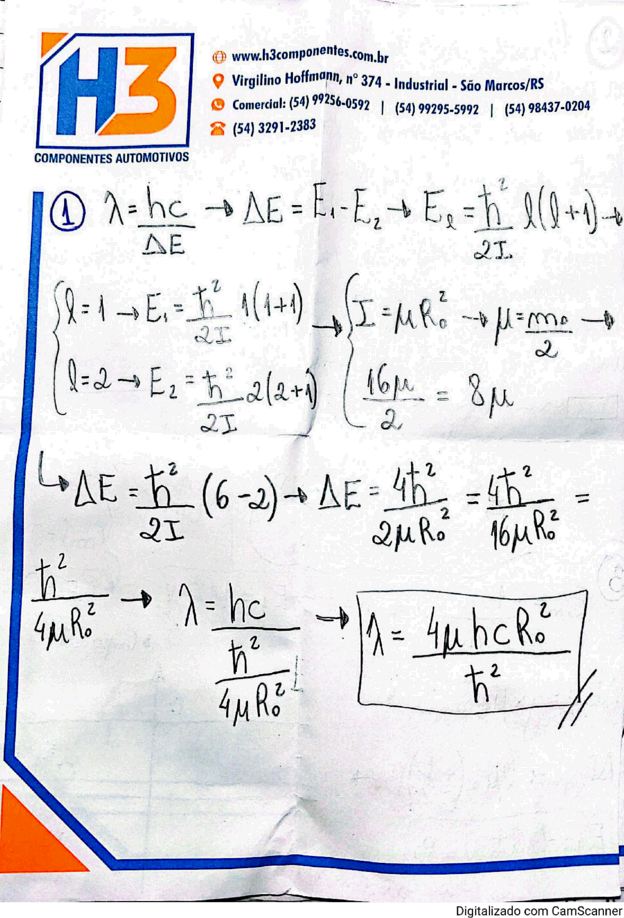 H3
COMPONENTES AUTOMOTIVOS
www.h3componentes.com.br
Virgilino Hoffmann, nº 374 - Industrial - São Marcos/RS
Comercial: (54) 99256-0592 | (54) 99295-5992 | (54) 98437-0204
(54) 3291-2383
① λ = hc/ΔE → ΔE = E₁ - E₂ → E_ℓ = ħ²/2I ℓ(ℓ+1) →
{ ℓ = 1 → E₁ = ħ²/2I 1(1+1) → { I = μR₀² → μ = m₀/2 →
ℓ = 2 → E₂ = ħ²/2I 2(2+1) 16μ/2 = 8μ
↳ ΔE = ħ²/2I (6-2) → ΔE = 4ħ²/2μR₀² = 4ħ²/16μR₀² =
ħ²/4μR₀² → λ = hc/(ħ²/4μR₀²) → λ = 4μhcR₀²/ħ² //
Digitalizado com CamScanner